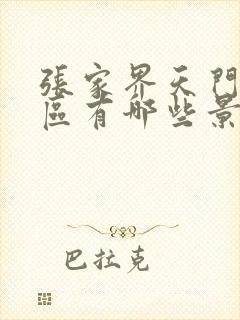 張家界天門
區有哪些景
巴拉克